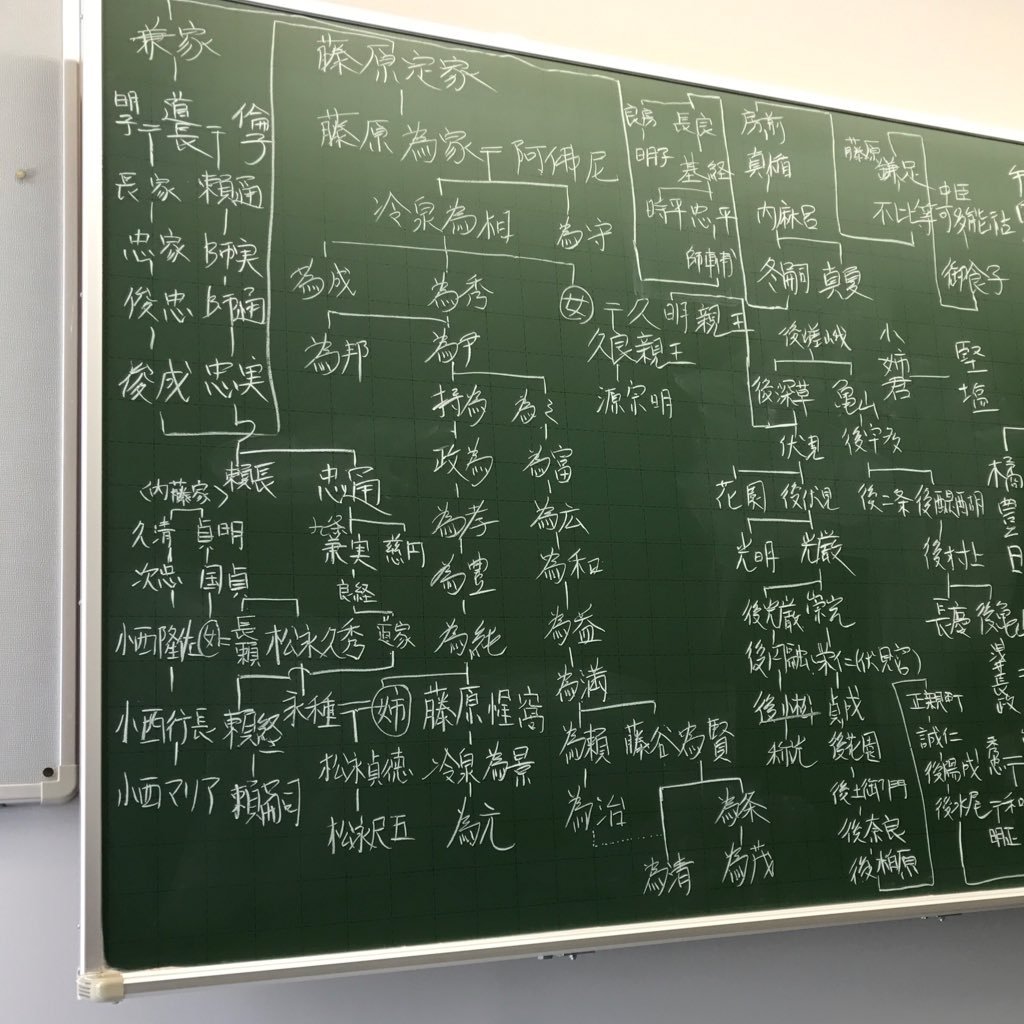 兼家
明子 道長 倫子
長家 頼通
忠家 師実
俊忠 師通
俊成 忠実
頼長 忠通
〈内藤家〉
久清 貞明
次忠 国貞
九条兼実 慈円
良経
小西隆佐 女 長頼 松永久秀 道家
小西行長 頼
小西マリア 頼
永種 姉 藤原惺窩
松永貞徳 冷泉為景
松永尺五 為元
藤原定家
藤原為家 阿佛尼
冷泉為相 為守
為成 為秀 女 久明親王
為邦 為尹 久良親王
源宗明
持為 為之
政為 為富
為孝 為広
為豊 為和
為純 為益
為満
為頼 藤谷為賢
為治 為条
為清 為茂
良房 長良
明子 基経
時平 忠平
師輔
房前
真楯
内麻呂
冬嗣 真夏
藤原鎌足
不比等
中臣可多能祜
御食子
後嵯峨
後深草 亀山
伏見 後宇多
花園 後伏見 後二条 後醍醐
光明 光厳 後村上
後光厳 崇光 長慶 後亀
後円融 栄仁(伏見宮)
後小松 貞成
称光 後花園
後土御門
後奈良
後柏原
正親町
誠仁
後陽成
後水尾
明正
小姉君
堅塩
橘豊日